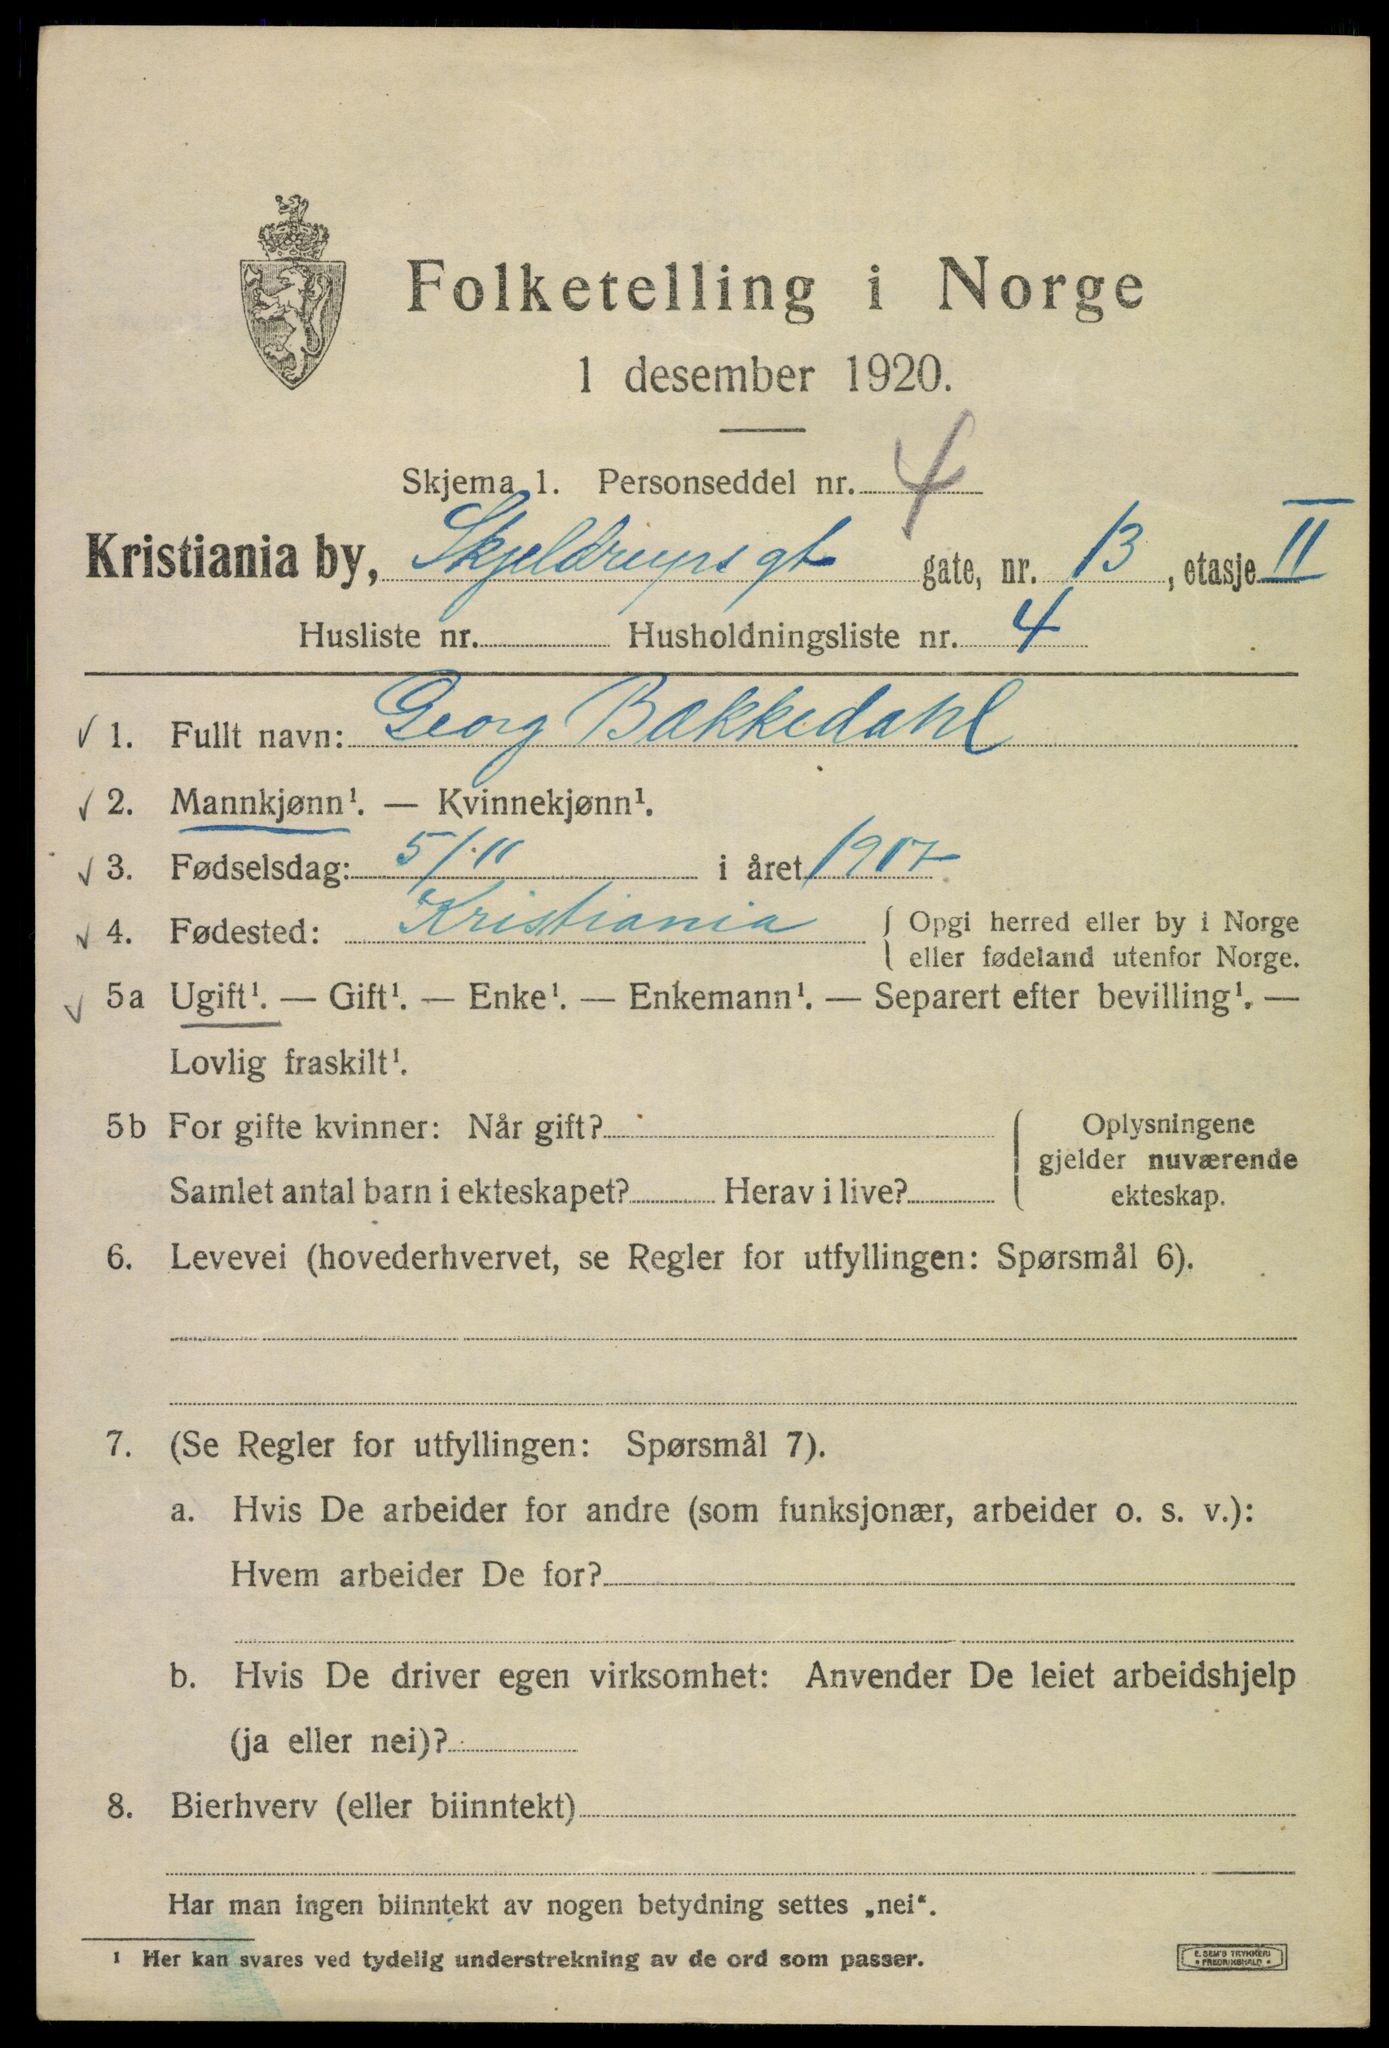 Folketelling i Norge
1 desember 1920.
Skjema 1. Personseddel nr. 4
Kristiania by, Skjeldrups gt gate, nr. 13, etasje II
Husliste nr. Husholdningsliste nr. 4
1. Fullt navn: Georg Bækkedahl
2. Mannkjønn¹. — Kvinnekjønn¹.
3. Fødselsdag: 5/11 i året 1917
4. Fødested: Kristiania { Opgi herred eller by i Norge
eller fødeland utenfor Norge.
5a Ugift¹. — Gift¹. — Enke¹. — Enkemann¹. — Separert efter bevilling¹. —
Lovlig fraskilt¹.
5b For gifte kvinner: Når gift? { Oplysningene
gjelder nuværende
Samlet antal barn i ekteskapet? Herav i live? ekteskap.
6. Levevei (hovederhvervet, se Regler for utfyllingen: Spørsmål 6).
7. (Se Regler for utfyllingen: Spørsmål 7).
a. Hvis De arbeider for andre (som funksjonær, arbeider o. s. v.):
Hvem arbeider De for?
b. Hvis De driver egen virksomhet: Anvender De leiet arbeidshjelp
(ja eller nei)?
8. Bierhverv (eller biinntekt)
Har man ingen biinntekt av nogen betydning settes „nei“.
¹ Her kan svares ved tydelig understrekning av de ord som passer.
E. SEM'S TRYKKERI
• FREDRIKSHALD •